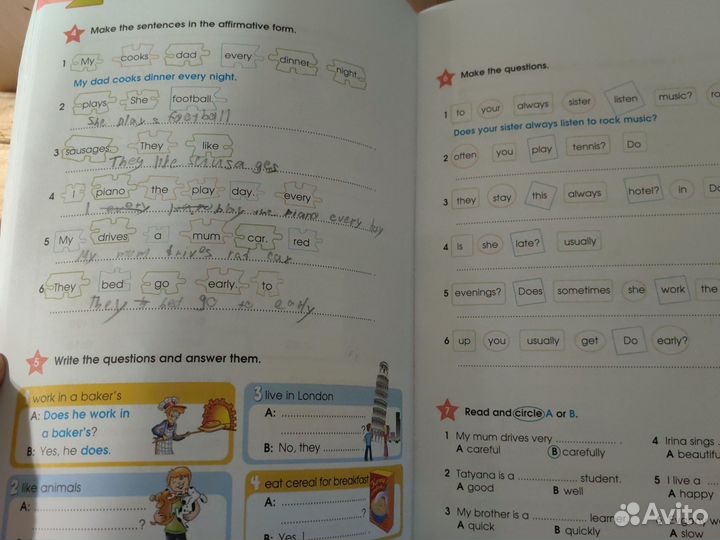 4 Make the sentences in the affirmative form.
1 My cooks dad every dinner night.
My dad cooks dinner every night.
2 plays She football.
She plays football
3 sausages. They like
They like
4 I piano the play day. every
I every play the piano every
5 My drives a mum car. red
My mum drives red car
6 They bed go early. to
They to bed go to early
5 Write the questions and answer them.
1 work in a baker's
A: Does he work in
a baker's?
B: Yes, he does.
2 like animals
A:
?
3 live in London
A:
?
B: No, they
4 eat cereal for breakfast
A:
?
B: Yes, I
6 Make the questions.
1 to your always sister listen music?
Does your sister always listen to rock music?
2 often you play tennis? Do
3 they stay this always hotel? in
4 Is she late? usually
5 evenings? Does sometimes she work the
6 up you usually get Do early?
7 Read and circle A or B.
1 My mum drives very
A careful B carefully
2 Tatyana is a student.
A good B well
3 My brother is a learner
A quick B quickly
4 Irina sings
A
5 I live a
A happy
A slow
Avito